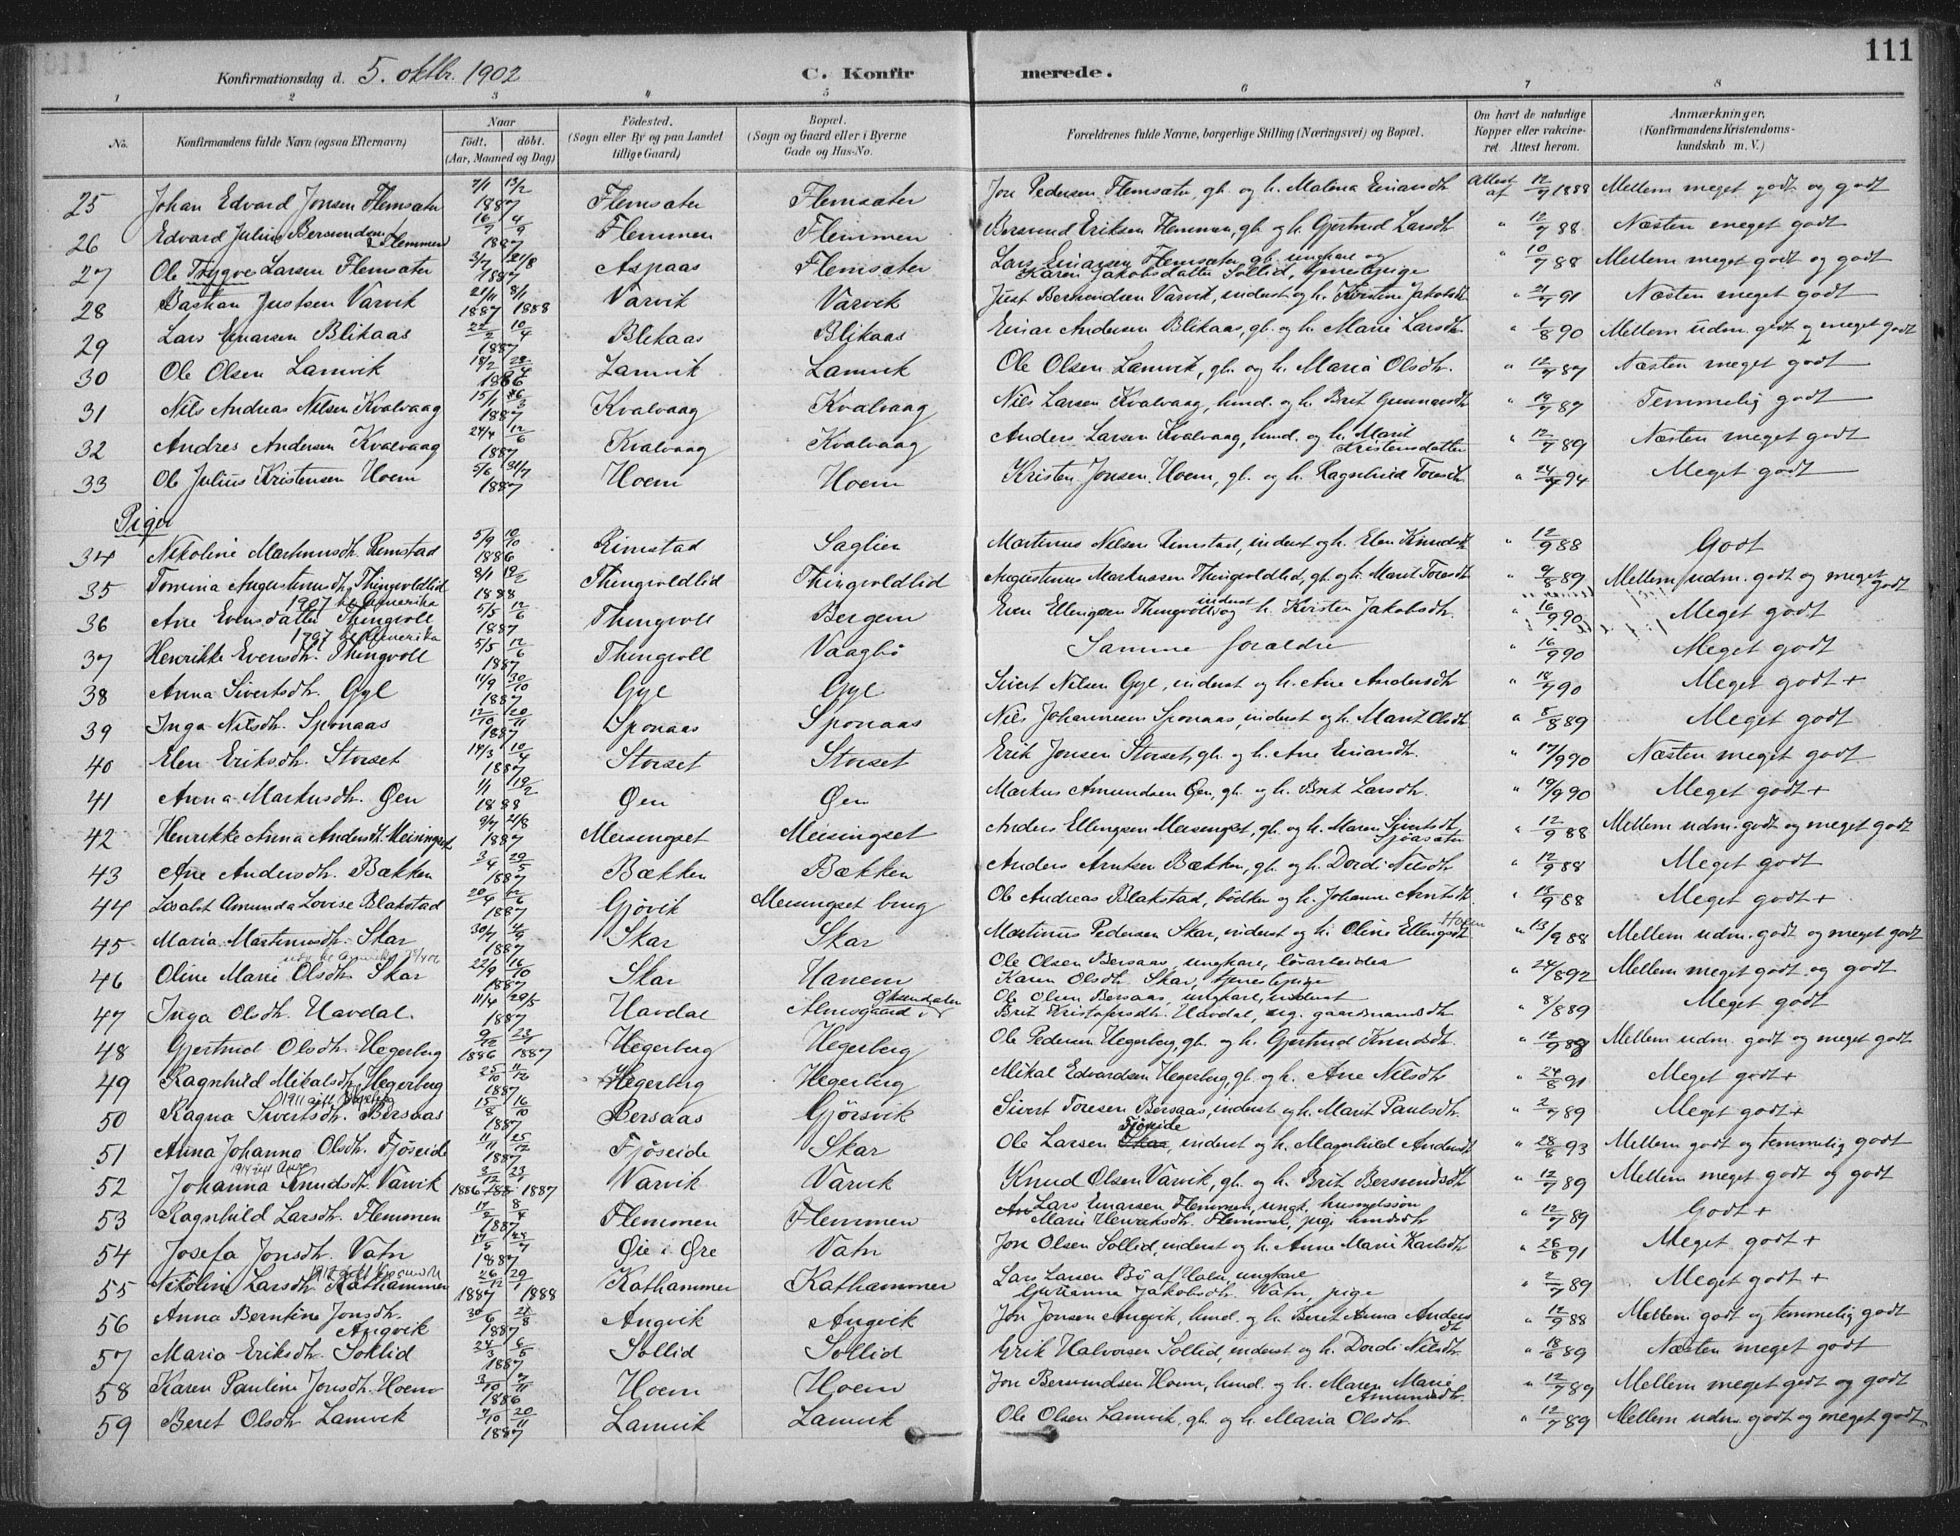 111
Konfirmationsdag d. 5. oktbr. 1902 C. Konfirmerede.
1 2 3 4 5 6 7 8
No. Konfirmandens fulde Navn (ogsaa Efternavn) Naar født. døbt. (Aar, Maaned og Dag) Fødested. (Sogn eller By og paa Landet tillige Gaard) Bopæl. (Sogn og Gaard eller i Byerne Gade og Hus-No. Forældrenes fulde Navne, borgerlige Stilling (Næringsvei) og Bopæl. Om havt de naturlige Kopper eller vakcineret. Attest herom. Anmærkninger, (Konfirmandens Kristendomskundskab m. V.)
25 Johan Edvard Jonsen Flemsæter 7/1 13/2 1887 Flemsæter Flemsæter Jon Pedersen Flemsæter, gb. og h. Malena Einarsdtr. Attest af 12/7 1888 Mellem meget godt og godt
26 Edvard Julius Bersundsen Flemmen 16/7 4/9 1887 Flemmen Flemmen Bersund Eriksen Flemmen, gb. og h. Gjertrud Larsdtr. " 12/7 88 Næsten meget godt
27 Ole Trygve Larsen Flemsæter 3/7 21/8 1887 Aspaas Flemsæter Lars Einarsen Flemsæter, gb. ungkare og Karen Jakobsdatter Sollid, tjenestepige " 10/7 88 Mellem meget godt og godt
28 Bastian Justsen Varvik 21/11 8/1 1887 1888 Varvik Varvik Just Bersundsen Varvik, inderst og h. Kirstine Jakobsdtr. " 21/7 91 Næsten meget godt
29 Lars Einarsen Blikaas 22/2 10/4 1887 Blikaas Blikaas Einar Andersen Blikaas, gb. og h. Marie Larsdtr. " 1/8 90 Mellem udm. godt og meget godt
30 Ole Olsen Lamvik 18/2 1886 Lamvik Lamvik Ole Olsen Lamvik, gb. og h. Maria Olsdtr. " 12/7 87 Næsten meget godt
31 Nils Andreas Nilsen Kvalvaag 15/1 1887 Kvalvaag Kvalvaag Nils Larsen Kvalvaag, husmd. og h. Brit Gunnarsdtr. " 13/7 87 Temmelig godt
32 Andres Andersen Kvalvaag 24/4 12/6 1887 Kvalvaag Kvalvaag Anders Larsen Kvalvaag, husmd. og h. Marit Kristensdatter " 12/7 89 Næsten meget godt
33 Ole Julius Kristensen Hoem 5/6 31/7 1887 Hoem Hoem Kristen Jonsen Hoem, gb. og h. Ragnhild Toresdtr. " 24/7 94 Meget godt
Piger
34 Nikoline Martinusdtr. Rimstad 5/9 10/10 1886 Rimstad Saglien Martinus Nilsen Rimstad, inderst og h. Elen Knudsdtr. " 12/9 88 Godt
35 Tomina Augustinusdtr. Thingvoldlid 8/1 19/2 1888 Thingvoldlid Thingvoldlid Augustinus Markussen Thingvoldlid, gb. og h. Marit Toresdtr. " 9/8 89 Mellem udm. godt og meget godt
1907 til Amerika
36 Ane Evensdatter Thingvoll 5/5 12/6 1887 Thingvoll Bergem Even Ellingsen Thingvoll, inderst og h. Kirsten Jakobsdtr. " 16/9 90 Meget godt
1907 til Amerika
37 Henrikke Evensdtr. Thingvoll 5/5 12/6 1887 Thingvoll Vaagbø Samme forældre " 16/9 90 Meget godt
38 Anna Sivertsdtr. Gyl 11/9 30/10 1887 Gyl Gyl Sivert Nilsen Gyl, inderst og h. Ane Andersdtr. " 18/7 90 Meget godt +
39 Inga Nilsdtr. Sponaas 12/10 20/11 1887 Sponaas Sponaas Nils Johannesen Sponaas, inderst og h. Marit Olsdtr. " 8/8 89 Meget godt
40 Elen Eriksdtr. Storset 14/3 10/4 1887 Storset Storset Erik Jonsen Storset, gb. og h. Ane Einarsdtr. " 17/9 90 Næsten meget godt
41 Anna Markusdtr. Øen 1/1 19/2 1888 Øen Øen Markus Amundsen Øen, gb. og h. Brit Larsdtr. " 19/9 90 Meget godt +
42 Henrikke Anna Andersdtr. Meisingset 9/7 21/8 1887 Meisingset Meisingset Anders Ellingsen Meisingset, gb. og h. Maren Sivertsdtr. Sjøasæter " 12/9 88 Mellem udm. godt og meget godt
43 Ane Andersdtr. Bækken 3/4 29/5 1887 Bækken Bækken Anders Arntsen Bækken, gb. og h. Dordi Nilsdtr. " 12/9 88 Meget godt
44 Lisabet Amunda Lovise Blakstad 20/4 12/6 1887 Gjøvik Meisingset brug Ole Andreas Blakstad, bødker og h. Johanna Arntsdtr. " 13/9 88 Meget godt +
45 Maria Martinusdtr. Skar 30/7 4/9 1887 Skar Skar Martinus Pedersen Skar, inderst og h. Oline Ellingsdtr. Hoem " 13/9 88 Mellem udm. godt og meget godt
46 Oline Marie Olsdtr. Skar 22/9 16/10 1887 Skar Hanem Ole Olsen Bersaas, ungkare, løsarbeider Karen Olsdtr. Skar, tjenestepige " 24/8 92 Mellem meget godt og godt
47 Inga Olsdtr. Havdal. 11/4 29/5 1887 Havdal Almsgaard i Øksendalen Ole Olsen Bersaas, ungkare, inderst Brit Kristofersdtr. Havdal, pig. gaardmandsdtr. " 8/8 89 Meget godt
48 Gjertrud Olsdtr. Hegerberg 9/12 23/1 1886 1887 Hegerberg Hegerberg Ole Pedersen Hegerberg, gb. og h. Gjertrud Knudsdtr. " 12/9 88 Mellem udm. godt og meget godt
49 Ragnhild Mikalsdtr. Hegerberg 25/10 11/12 1887 Hegerberg Hegerberg Mikal Edvardsen Hegerberg, gb. og h. Ane Nilsdtr. " 24/8 91 Meget godt +
50 Ragna Sivertsdtr. Bersaas 15/8 16/10 1887 Bersaas Gjørsvik Sivert Toresen Bersaas, inderst og h. Marit Paulsdtr. " 2/7 89 Meget godt +
51 Anna Johanna Olsdtr. Fjøseide 11/11 25/12 1887 Fjøseide Skar Ole Larsen Skar Fjøseide, inderst og h. Magnhild Andersdtr. " 28/8 93 Mellem godt og temmelig godt
52 Johanna Knudsdtr. Varvik 3/12 23/1 1886 1887 Varvik Varvik Knud Olsen Varvik, gb. og h. Brit Bersundsdtr. " 12/7 89 Mellem meget godt og godt
53 Ragnhild Larsdtr. Flemmen 17/2 8/4 1887 Flemmen Flemmen Lars Einarsen Flemmen, ungk. husmdssøn Marie Henriksdtr. Flemmen, pige husmdsdtr. " 12/7 89 Godt +
54 Josefa Jonsdtr. Vatn 1887 Øie i Øre Vatn Jon Olsen Sollid, inderst og h. Anne Marie Karlsdtr. " 26/8 91 Meget godt +
55 Nikoline Larsdtr. Kathammer 26/12 29/1 1887 1888 Kathammer Kathammer Lars Larsen Bø af Halse, ungkare Gurianna Jakobsdtr. Vatn, pige " 2/7 89 Meget godt +
56 Anna Berntine Jonsdtr. Angvik 30/6 21/8 1887 Angvik Angvik Jon Jonsen Angvik, husmd. og h. Beret Anna Andersdtr. " 12/9 88 Mellem godt og temmelig godt
57 Maria Eriksdtr. Sollid 24/3 6/5 1887 Sollid Sollid Erik Halvorsen Sollid, inderst og h. Dordi Nilsdtr. " 18/6 89 Næsten meget godt
58 Karen Pauline Jonsdtr. Hoem 3/10 7/11 1886 Hoem Hoem Jon Bersundsen Hoem, husmd. og h. Maren Marie Amundsdtr. " 12/7 89 Mellem meget godt og godt
59 Beret Olsdtr. Lamvik 7/10 20/11 1887 Lamvik Lamvik Ole Olsen Lamvik, gb. og h. Maria Olsdtr. " 12/7 89 Mellem udm. godt og meget godt